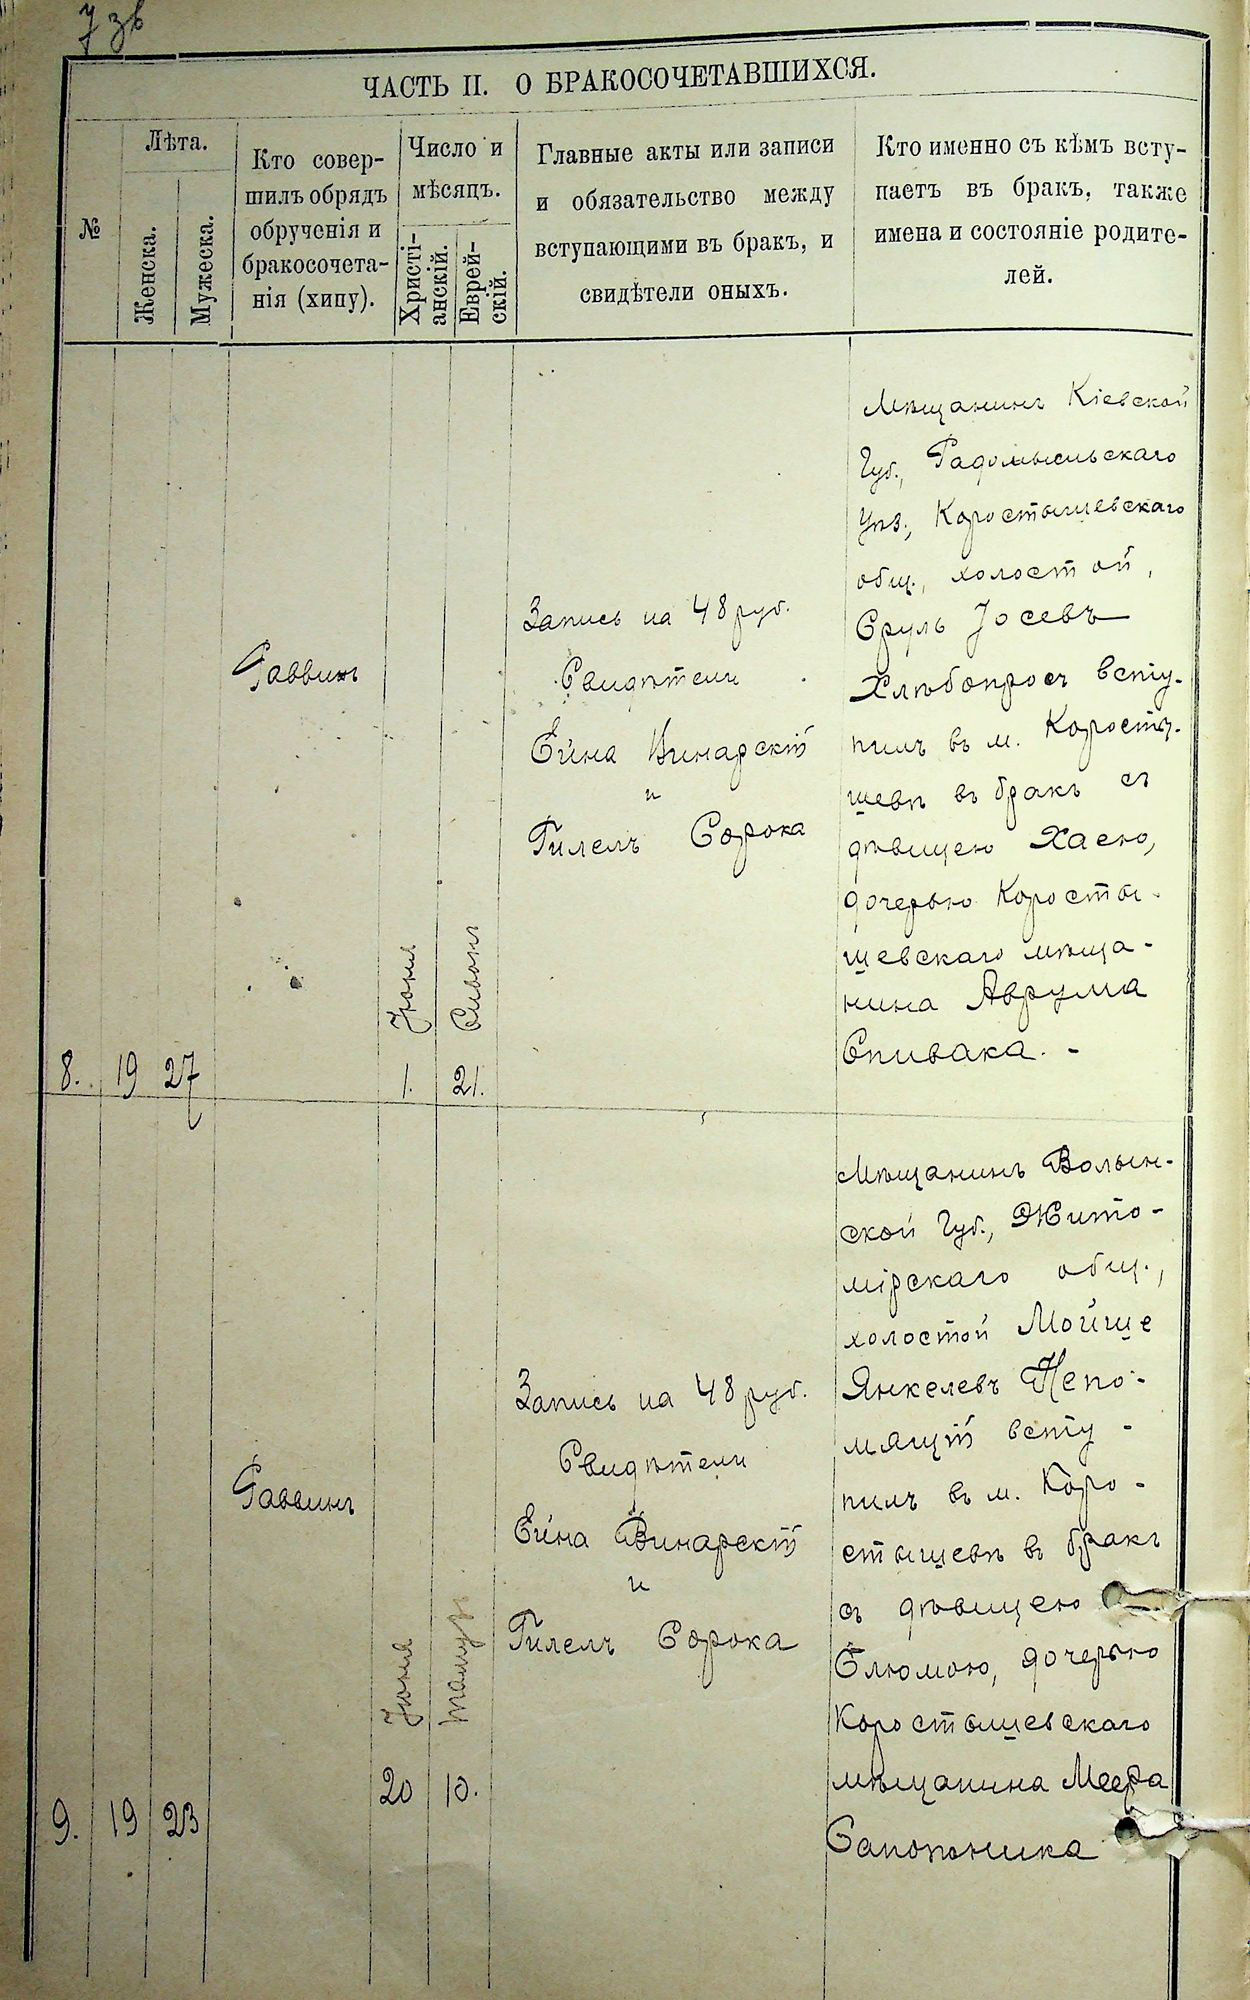 7 зв
ЧАСТЬ II. О БРАКОСОЧЕТАВШИХСЯ.
№
Лѣта.
Женска.
Мужеска.
Кто совер-
шилъ обрядъ
обрученія и
бракосочета-
нія (хипу).
Число и
мѣсяцъ.
Христі-
анскій.
Еврей-
скій.
Главные акты или записи
и обязательство между
вступающими въ бракъ, и
свидѣтели оныхъ.
Кто именно съ кѣмъ всту-
паетъ въ бракъ, также
имена и состояніе родите-
лей.
8.
19
27
Раввинъ
Іюня
1.
Сивонъ
21.
Запись на 48 руб.
Свидѣтели
Ейна Винарскій
и
Гилель Сорока
Мѣщанинъ Кіевской
Губ., Радомысльскаго
Уѣз., Коростышевскаго
общ., холостой,
Сруль Іосевъ
Хлѣбопросъ всту-
пилъ въ м. Коросты-
шевѣ въ бракъ съ
дѣвицею Хаею,
дочерью Коросты-
шевскаго мѣща-
нина Аврума
Спивака. -
9.
19
23
Раввинъ
Іюня
20
Тамузъ
10.
Запись на 48 руб.
Свидѣтели
Ейна Винарскій
и
Гилель Сорока
Мѣщанинъ Волын-
ской Губ., Жито-
мірскаго общ.,
холостой Мойше
Янкелевъ Непо-
мящій всту-
пилъ въ м. Коро-
стышевѣ въ бракъ
съ дѣвицею
Блюмою, дочерью
Коростышевскаго
мѣщанина Меера
Сапожника